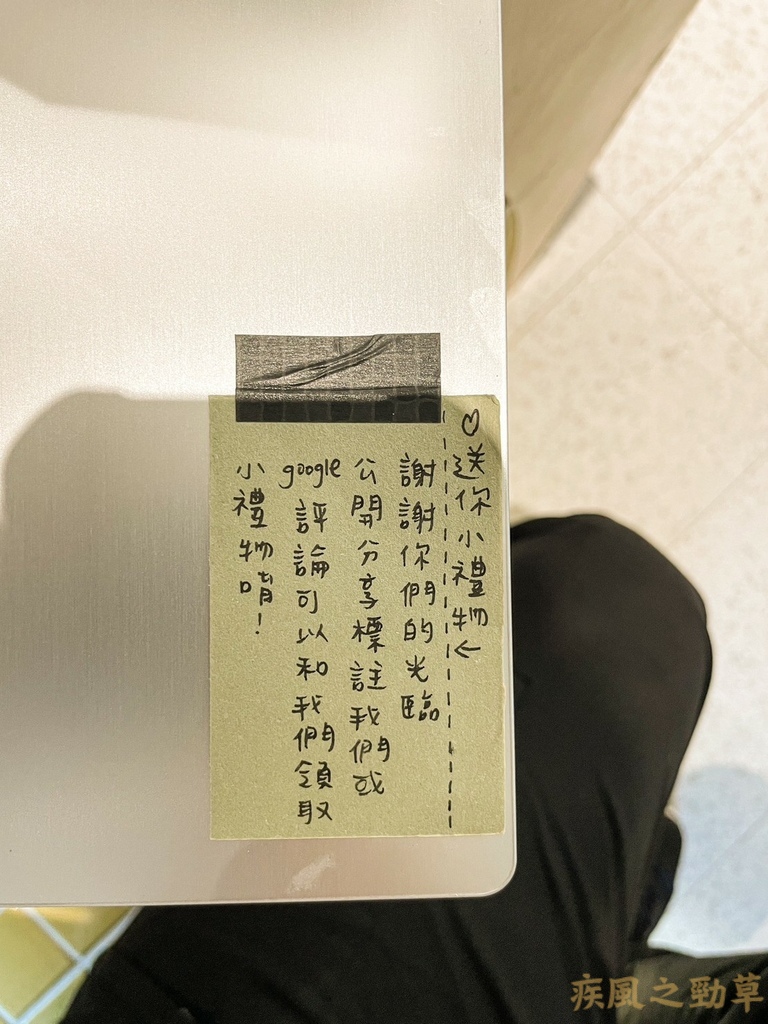 ♡送你小禮物←
謝謝你們的光臨
公開分享標註我們或
google評論可以和我們領取
小禮物唷!
疾風之勁草